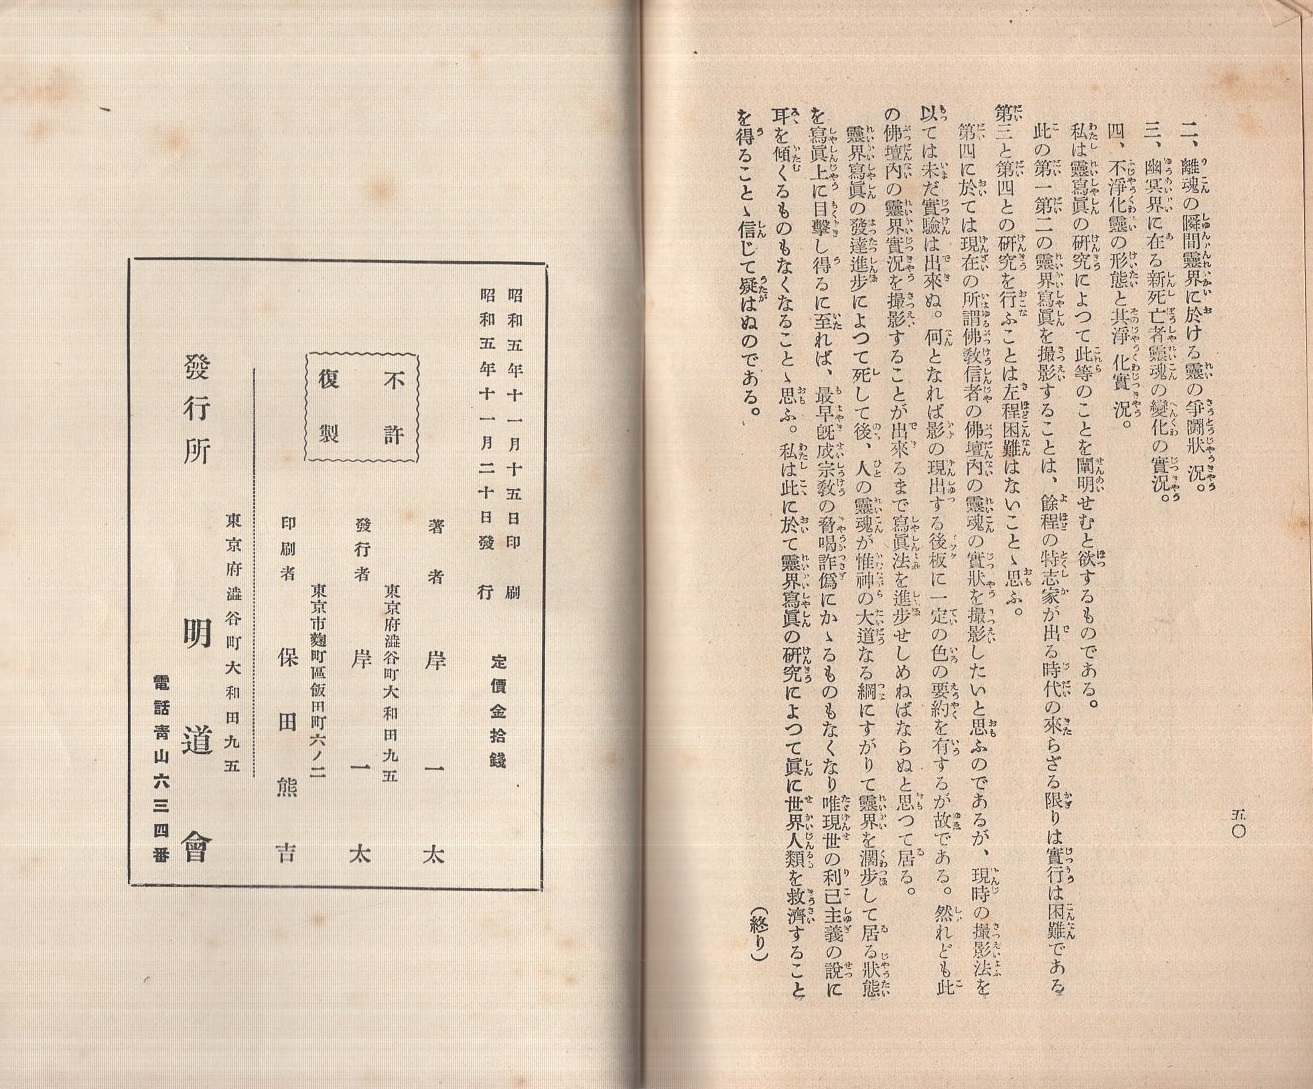 二、離魂の瞬間靈界に於ける靈の爭鬪狀況。
三、幽冥界に在る新死亡者靈魂の變化の實況。
四、不淨化靈の形態と其淨化實況。
私は靈寫眞の硏究によつて此等のことを闡明せむと欲するものである。
此の第一第二の靈界寫眞を撮影することは、餘程の特志家が出る時代の來らざる限りは實行は困難である
第三と第四との硏究を行ふことは左程困難はないことゝ思ふ。
第四に於ては現在の所謂佛敎信者の佛壇內の靈魂の實狀を撮影したいと思ふのであるが、現時の撮影法を
以ては未だ實驗は出來ぬ。何となれば影の現出する後板に一定の色の要約を有するが故である。然れども此
の佛壇內の靈界實況を撮影することが出來るまで寫眞法を進步せしめねばならぬと思つて居る。
靈界寫眞の發達進步によつて死して後、人の靈魂が惟神の大道なる綱にすがりて靈界を濶步して居る狀態
を寫眞上に目擊し得るに至れば、最早旣成宗敎の脅喝詐僞にかゝるものもなくなり唯現世の利己主義の說に
耳を傾くるものもなくなることゝ思ふ。私は此に於て靈界寫眞の硏究によつて眞に世界人類を救濟すること
を得ることゝ信じて疑はぬのである。
(終り)
五〇
昭和五年十一月十五日印刷
昭和五年十一月二十日發行
定價金拾錢
不許
復製
著者 岸一太
東京府澁谷町大和田九五
發行者 岸一太
東京市麴町區飯田町六ノ二
印刷者 保田熊吉
東京府澁谷町大和田九五
發行所 明道會
電話靑山六三四番